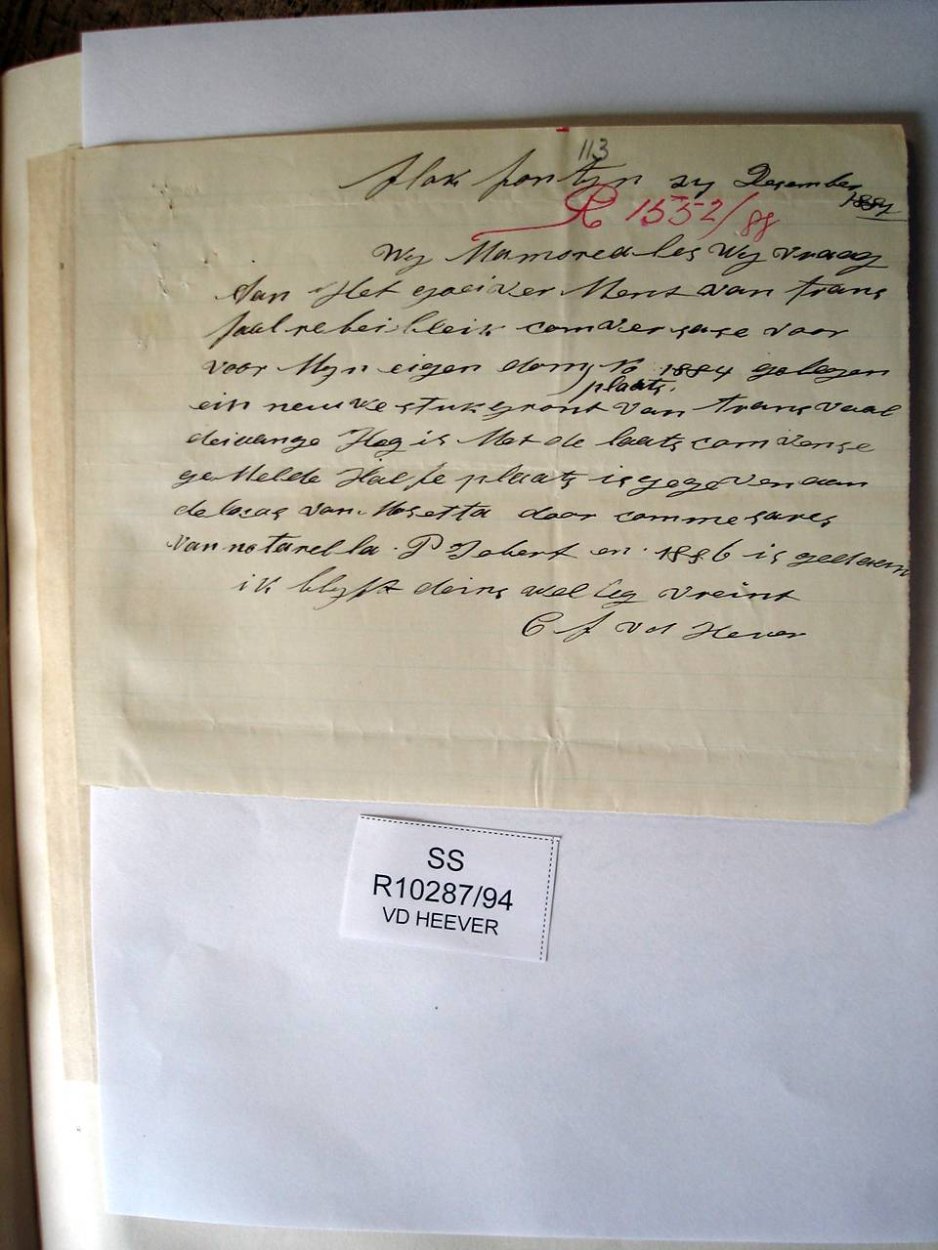 113
flak fontyn 27 Desember
1887
R 1552/88
Wy Mamoreales Wy vraag
Aan Het goeiverMent van trans
faal rebeibleik comversase voor
voor Myn eigen dom No 1884 gelegen
plaats.
ein neuwe stuk gront van transvaal
Hog is Met de laats comvense
geMelde Halfe plaats is gegeven aan
de locas van Mosetta door commesares
van notarella P Jobert en 1886 is gedaen
ik blyft deins wel leg vreint
C J v d Hever
SS
R10287/94
VD HEEVER